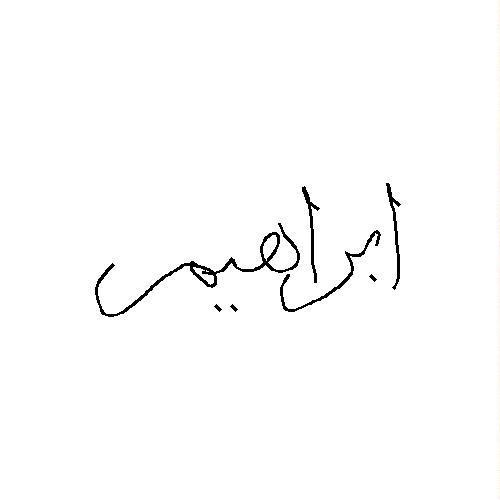 ابراهيم